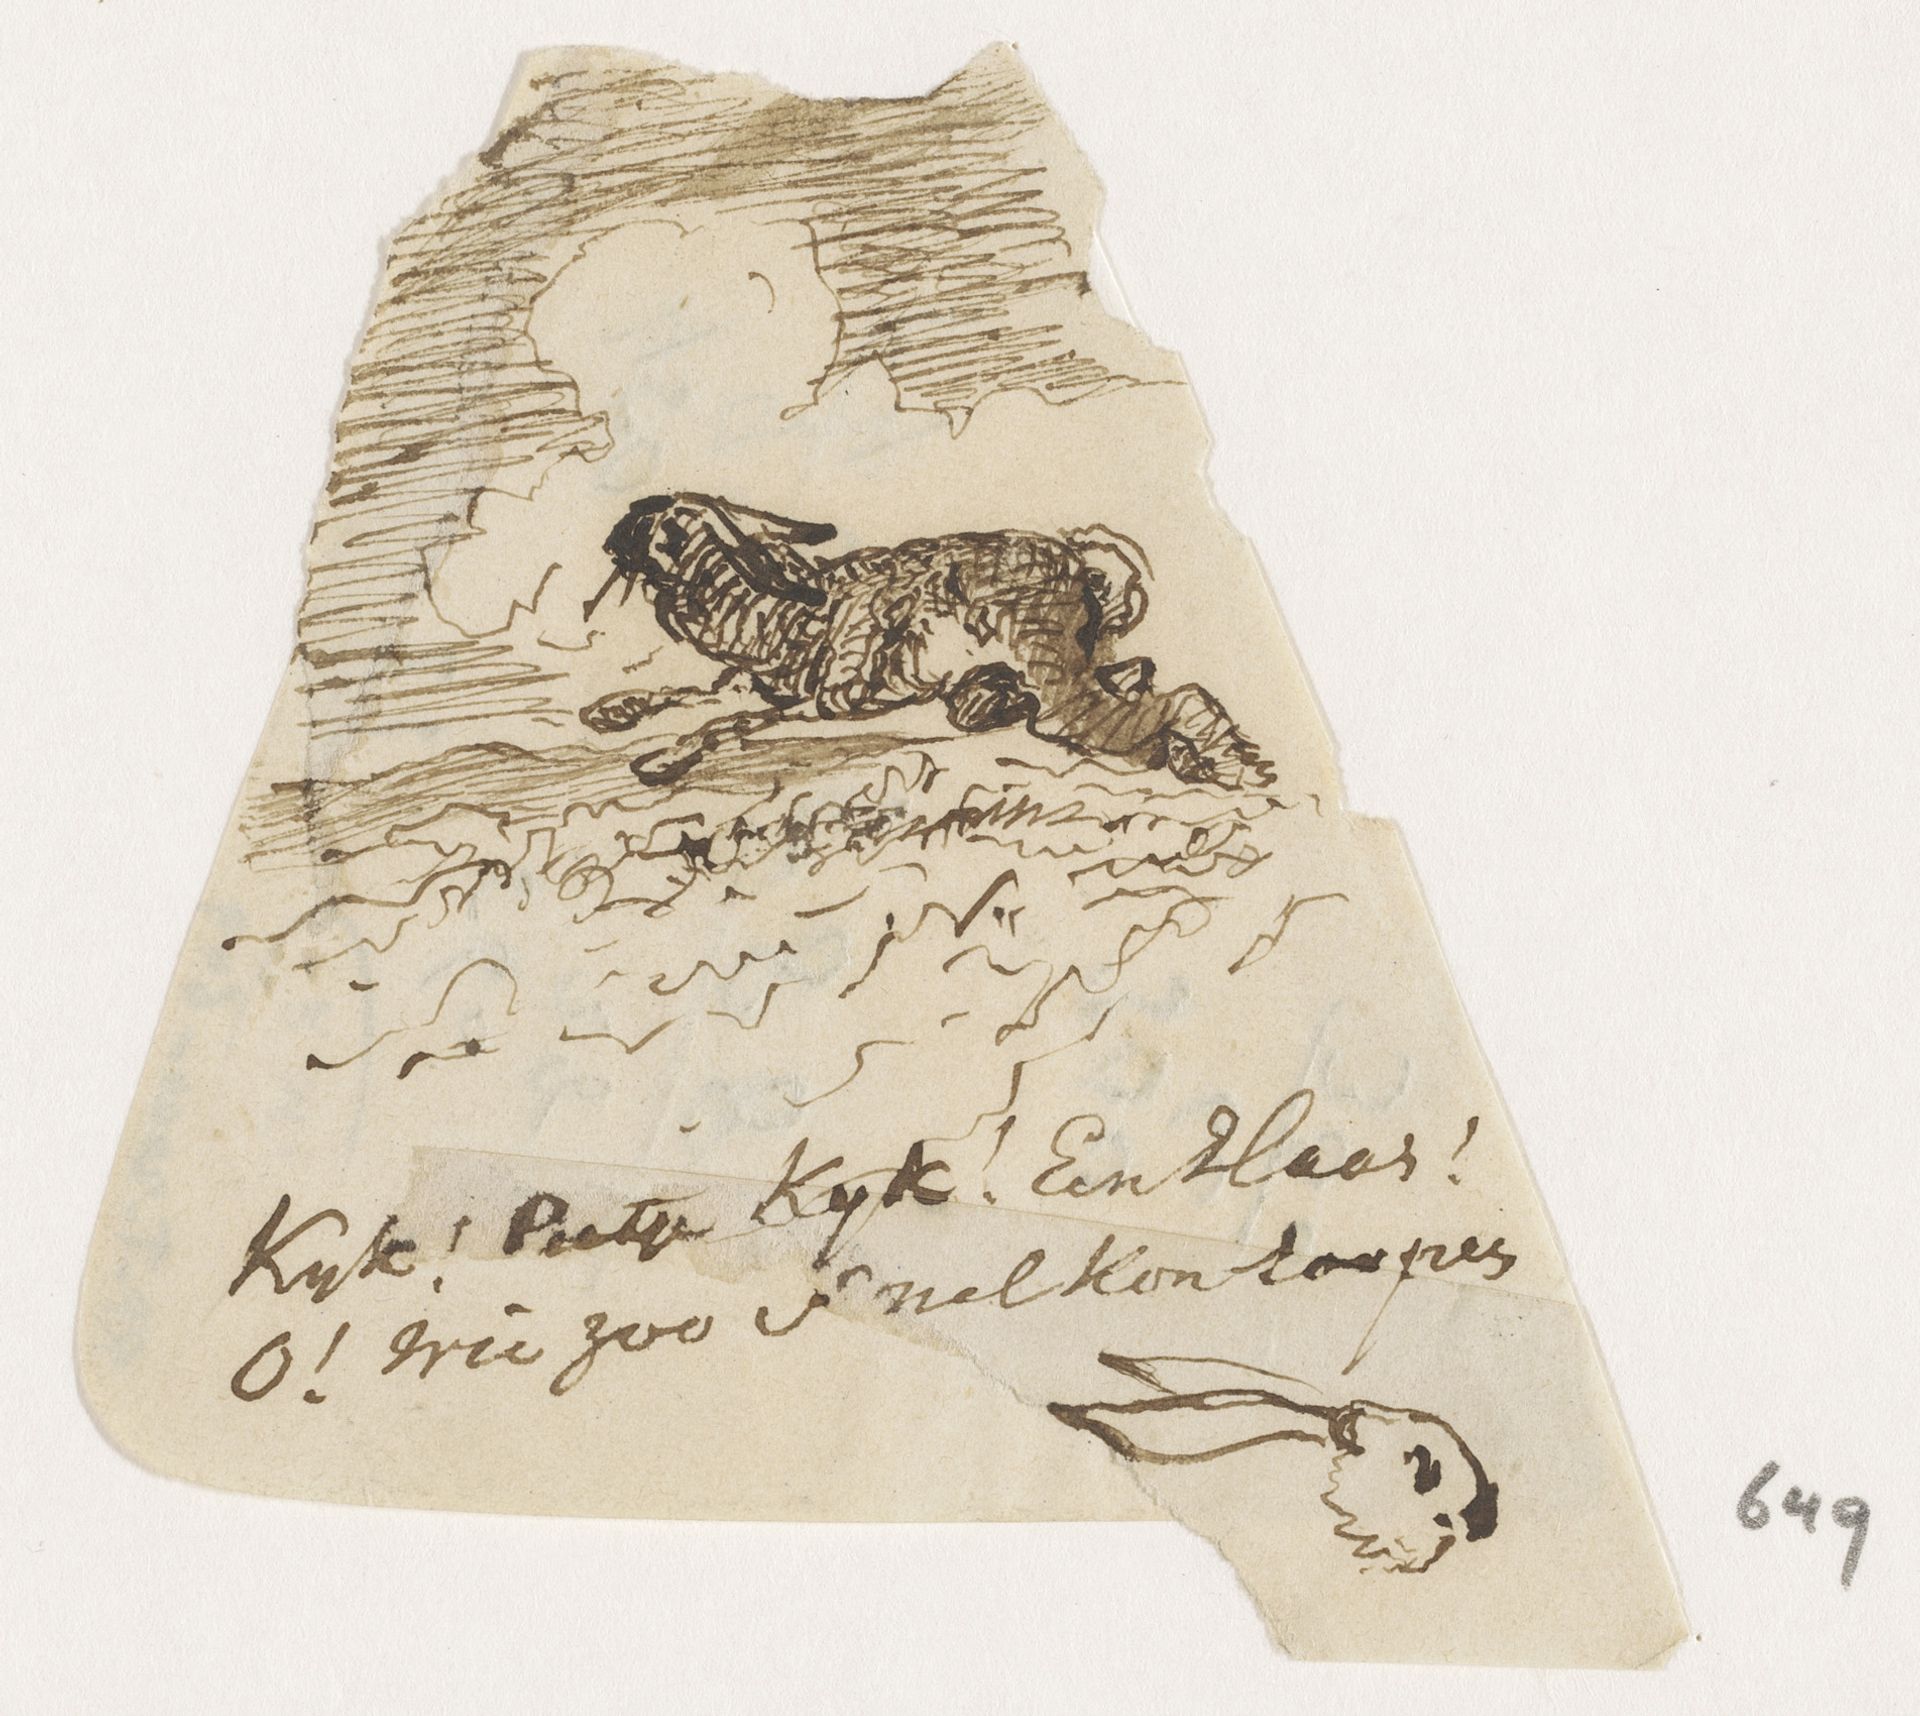 Kyk! Pietje Kyk! Een Haas!
O! wie zoo snel kon loopen
649